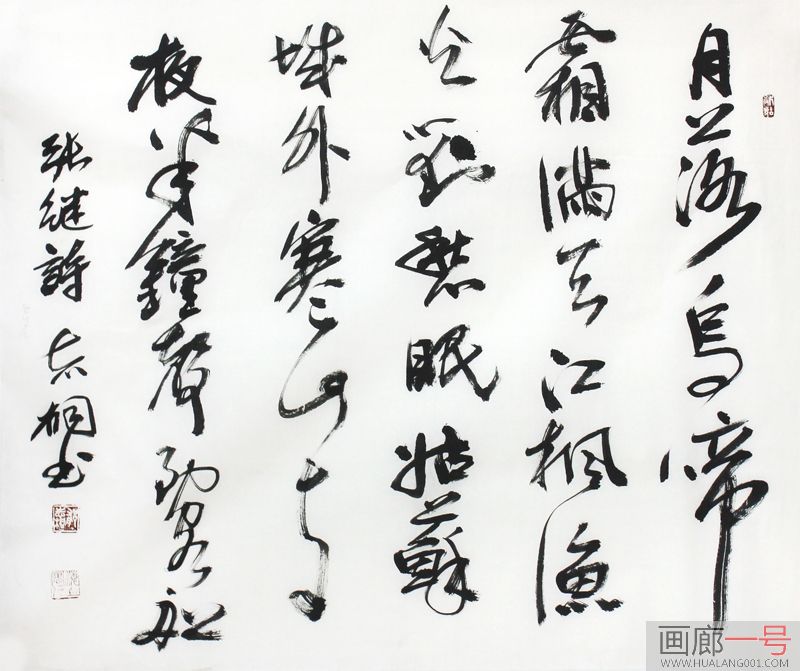 月落烏啼
霜滿天江楓漁
火對愁眠姑蘇
城外寒山寺
夜半鐘聲到客船
張継詩 桐书
画廊一号
WWW.HUALANG001.COM